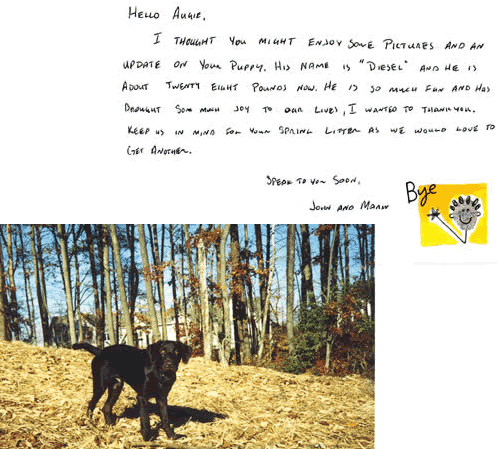 Hello Augie,
I thought you might enjoy some pictures and an
update on your puppy. His name is "Diesel" and he is
about twenty eight pounds now. He is so much fun and has
brought som much joy to our lives, I wanted to thank you.
Keep us in mind for your spring litter as we would love to
get another.
Speak to you soon,
John and
Bye